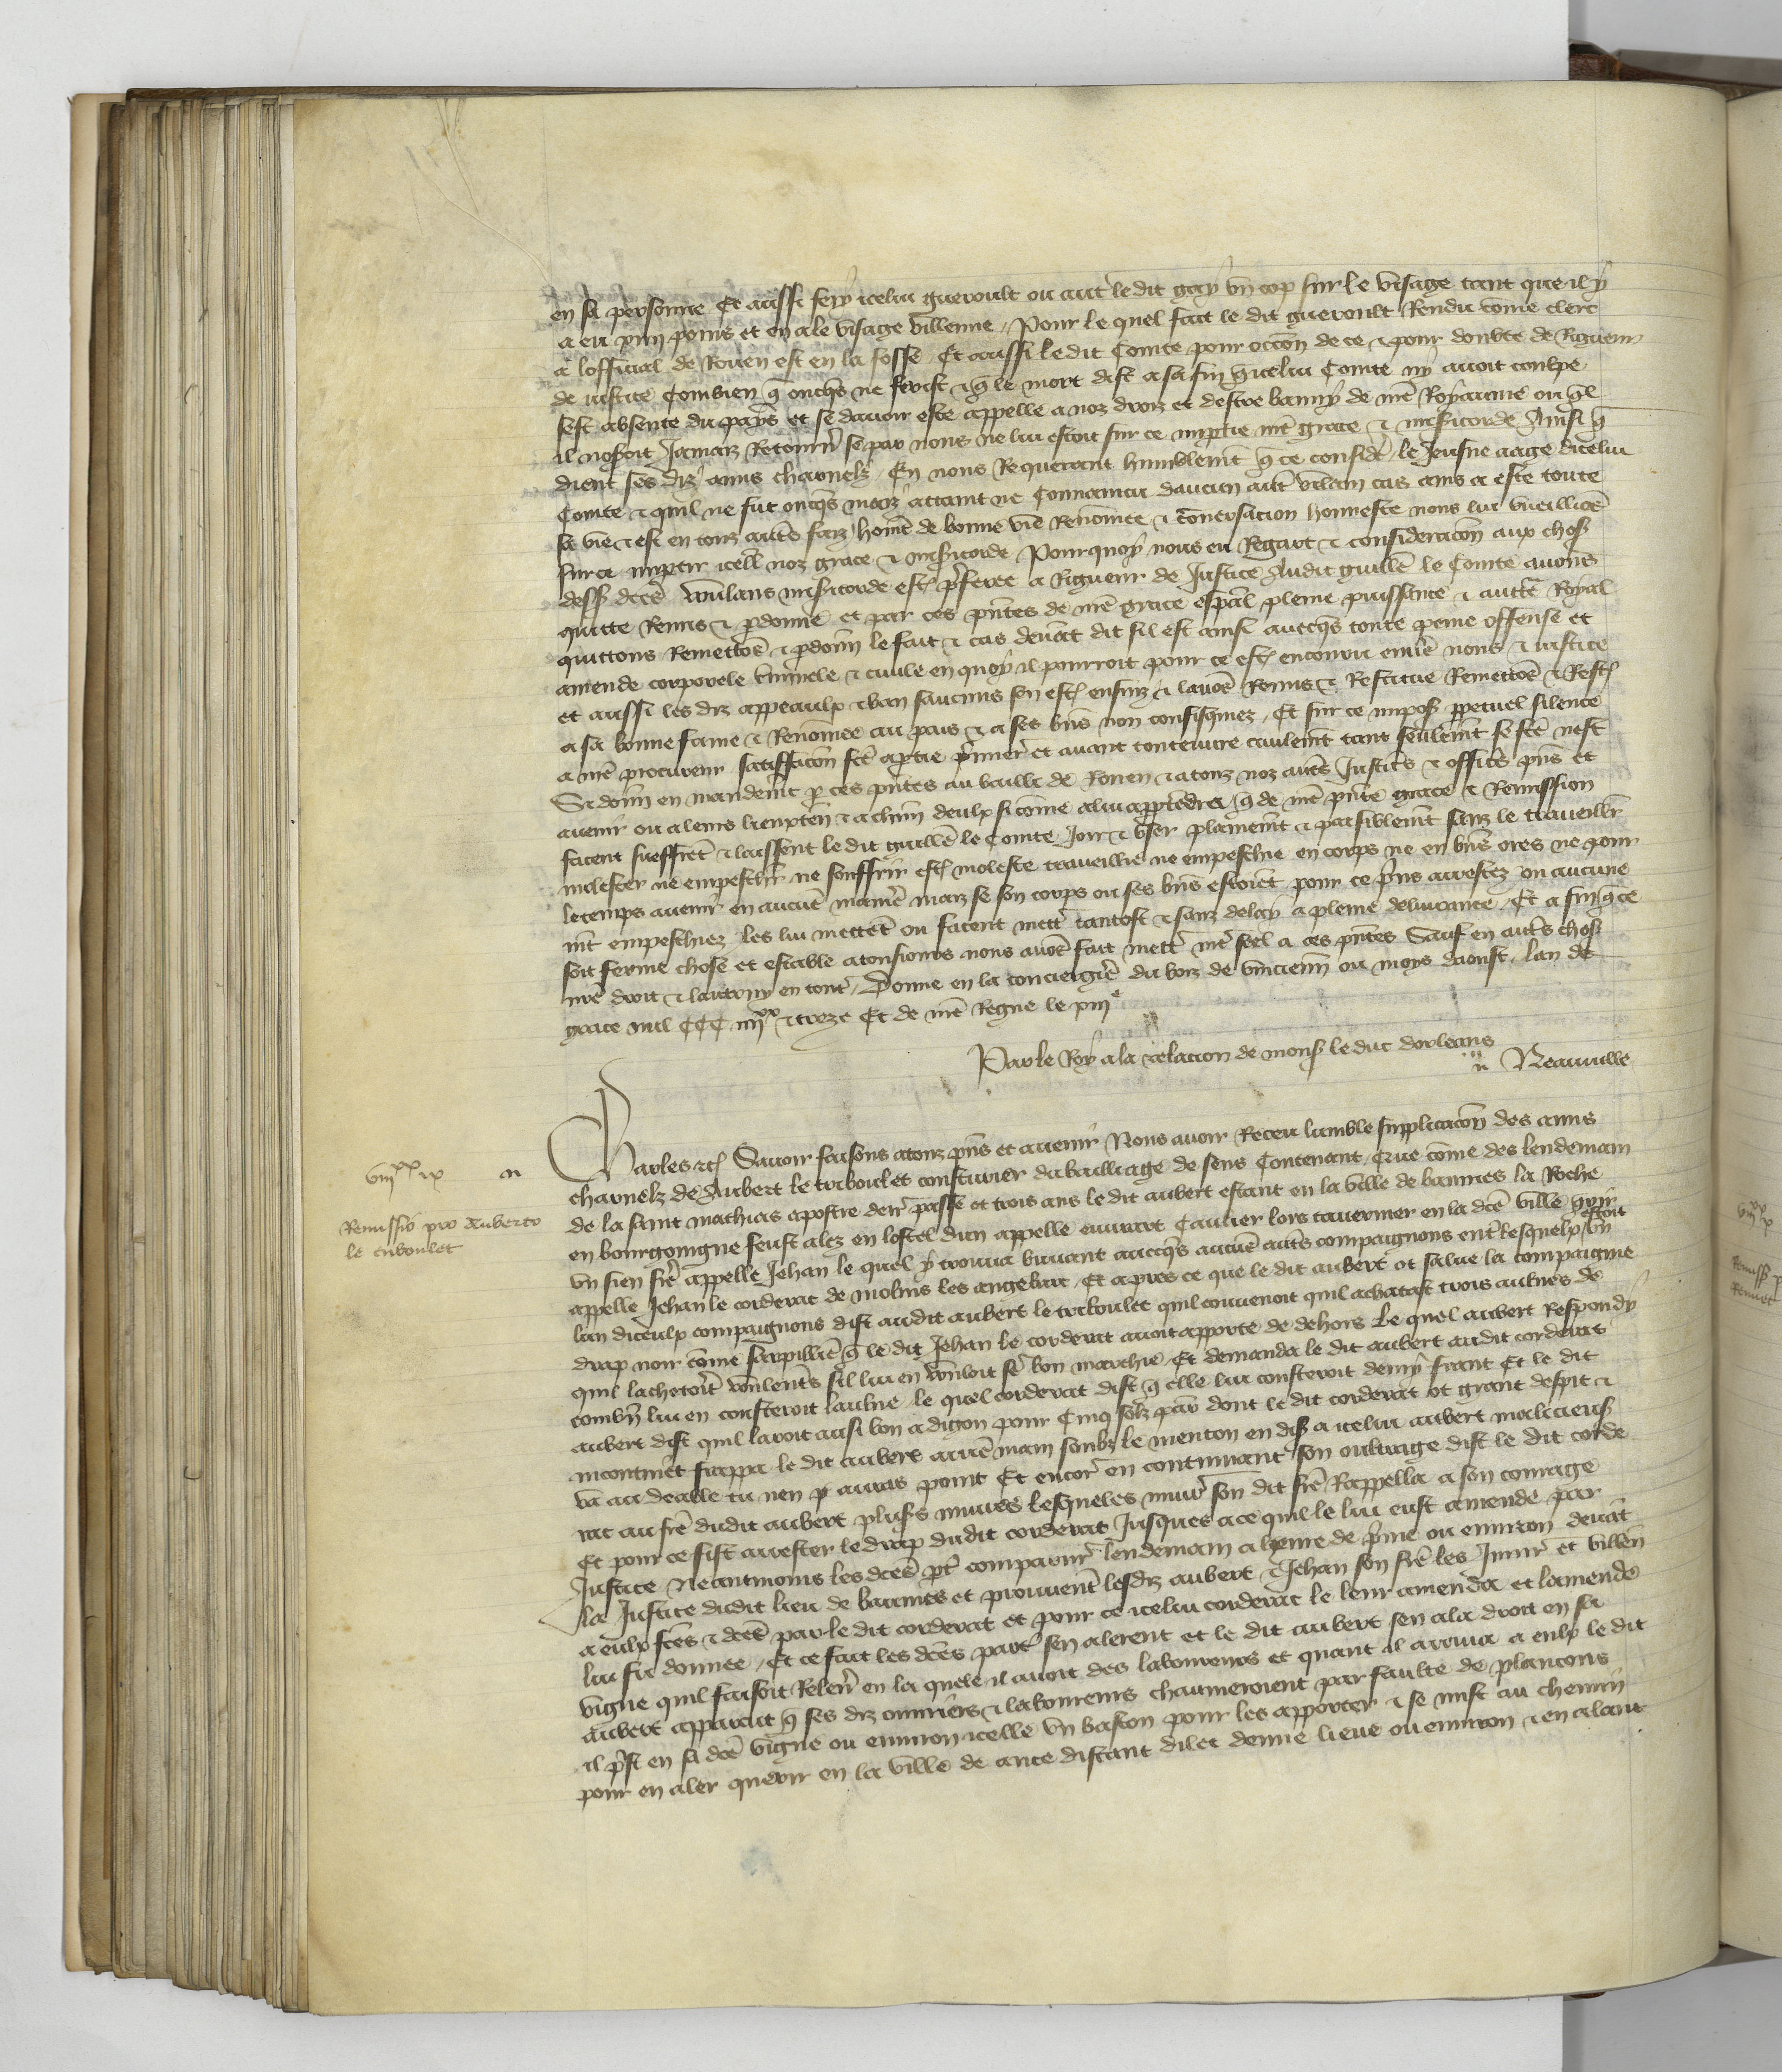 en sa personne Et aussi fery icelui gueroult ou autre le dit gay vn cop sur le visage tant que il y
a eu xiiij poins et en a le visage villenne / Pour le quel fait le dit gueroult Rendu cōme clerc
a lofficial de Rouen est en la fosse Et aussi le dit Comte pour occōn de ce & pour doubte de Rigueur
de iustice Combien q̄ onqs ne ferist & q̄ le mort dist a sa fin q̄ icelui Comte ny auoit coulpe
sest absente du pays et se dauoir este appelle a noz droiz et destre banny de nrē Royaume ou ql
il nosoit Jamaiz Retournr se par nous ne lui estoit sur ce imptie nrē grace & misericorde Ainsi q̄
dient ses diz amis charnelz En nous Requerant humblemt q̄ ce consideré le Jeusne aage dicelui
Comte & quil ne fut onqs maiz attaint ne Conuaincu daucun autre vilain cas ains a este toute
sa vie & est en touz autrs faiz homē de bonne vie Renōmee & conuersacion honneste nous lui vueillions
sur ce imptir icelle noz grace & misericorde Pourquoy nous eu Regart & consideracōn aux choses
dess dces voulans misericorde estre preferee a Rigueur de Justice Audit guillē le Comte auons
quitte Remis & pdonne et par ces pñtes de nrē grace espāl pleine puissance & auctē Royal
quittons Remettōs & pdonn̄ le fait & cas deuāt dit sil est ainsi auecqs toute peine offense et
amende corporele criminele & ciuile en quoy il pourroit pour ce estre encouru enuers nous & iustice
et aussi les diz appeaulx & ban saucuns sen estoient ensuiz & lauōs Remis & Restitue Remettōs & Restt
a sa bonne fame & Renōmee au pais & a ses bñs non confisquiez / Et sur ce imposons ppetuel silence
a nrē procureur satisffacōn fcē a ptie p̄mierē et auant toute euure ciuilemt tant seulemt se fcē nest
Si donn̄ en mandemt p ces pñtes au bailli de Rouen & a touz noz autrs Justiciers & officiers pñs et
auenir ou a leurs lieuxten̄ & a chūn deulx si cōme a lui apptēdra / q̄ de nrē pñte grace & Remission
facent sueffrēt & laissent le dit guillē le Comte Joir & vser plainemt & paisiblemt sanz le trauaillr
molester ne empeschr ne souffrir estre moleste trauaillie ne empeschie en corps ne en bñs ores ne pour
le temps auenir en aucune maniere maiz se son corps ou ses bñs estoient pour ce prins arrestez ou aucune
mt empeschiez les lui mettēt ou facent mettre tantost & sanz delay a pleine deliurance / Et a fin q̄ ce
soit ferme chose et estable a tousiours nous auōs fait mettre nrē seel a ces pñtes Sauf en autrs choses
nrē droit & lautruy en toutes / Donne en la conciergerie du bois de vincienn̄ ou moys daoust / lan de
grace mil CCC iiijxx & treze Et de nrē Regne le xiije
Par le Roy a la relacion de monss le duc dorleans
n Neauuille
viijxx ix n
Remissio pro Auberto
le triboulet
Charles &c Sauoir faisons a touz pñs et auenir Nous auoir Receu lumble supplicacōn des amis
charnelz de Aubert le triboulet cousturier du bailliage de sens Contenant / Que cōme des lendemain
de la saint mathias apostre dern̄ passe et trois ans le dit aubert estant en la ville de baunes la Roche
en bourgoingne feust alez en lostel dun appelle euurart Caulier lors tauernier en la dce ville querir
vn sien frē appelle Jehan le quel y trouua buuant auecqs aucūs autrs compaignons entre lesquelx estoit vn
appelle Jehan le corderat de molins les angebiat / Et apres ce que le dit aubert ot salue la compaignie
lun diceulx compaignons dist audit aubert le triboulet quil conuenoit quil achatast trois aulnes de
drap noir cōme sarpilliere q̄ le dit Jehan le corderat auoit apporte de dehors Le quel aubert Respondy
quil lachetoit voulentrs sil lui en vouloit fe bon marchie / Et demanda le dit aubert audit corderat
combn̄ lui en cousteroit laulne / le quel corderat dist q̄ elle lui cousteroit demy franc Et le dit
aubert dist quil lauroit ausi bon a digon pour Cinq solz par dont le dit corderat ot grant despit &
incontinēt frappa le dit aubert arriē main soubz le menton en dis a icelui aubert malicieuse
va au deable tu nen p auras point Et encore en continuant son oultrage dist le dit corde
rat au frē dudit aubert plusrs iniures lesqueles iniures son dit frē Rappella a son courage
Et pour ce fist arrester le drap dudit corderat Jusques a ce quil le lui eust amende par
Justice Neantmoins les dces pt comparurt lendemain a heure de prime ou enuiron deuāt
la Justice dudit lieu de baunes et prouuerēt lesdiz aubert & Jehan son frē les Iniures et villen̄
a eulx fces & dces par le dit corderat et pour ce icelui corderat le leur amenda et lamende
lui fu donnee / Et ce fait les dces partt sen alerent et le dit aubert sen ala droit en sa
vigne quil faisoit Releur̄ en la quele il auoit des laboureurs et quant il arriua a eulx le dit
aubert apparcut q̄ ses diz ouuriers & laboureurs chaumeroient par faulte de plancons
il prist en sa dce vigne ou enuiron icelle vn baston pour les apporter & se mist au chemin
pour en aler querir en la ville de ance distant dilec demie lieue ou enuiron & en alant